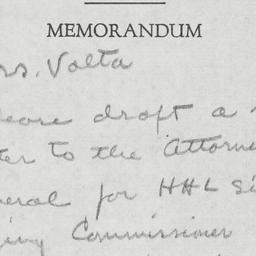 MEMORANDUM
rs. Volta
ease draft a
ter to the Attorne
eral for HHL si
ing Commissioner